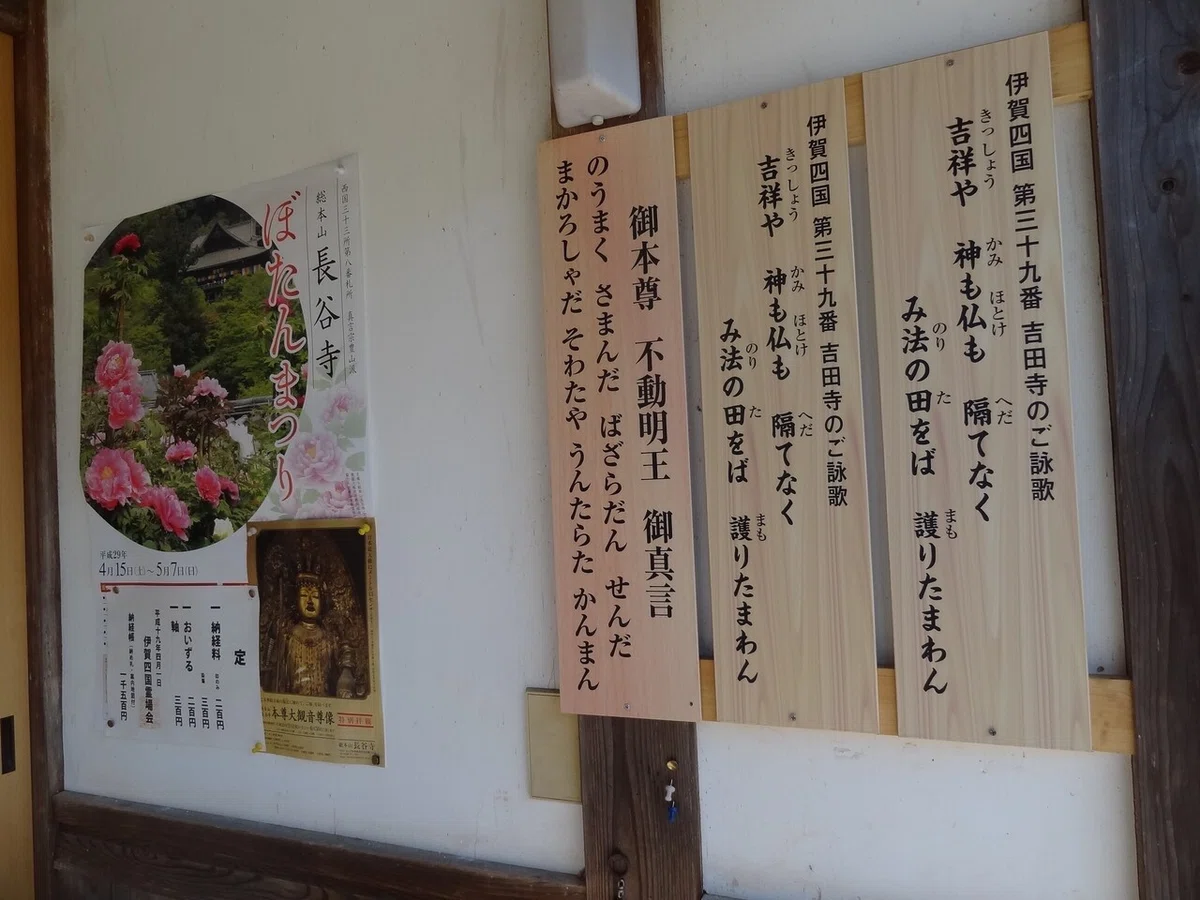 伊賀四国 第三十九番 吉田寺のご詠歌
吉祥や 神も仏も 隔てなく
きっしょう かみ ほとけ へだ
み法の田をば 護りたまわん
のり た まも
伊賀四国 第三十九番 吉田寺のご詠歌
吉祥や 神も仏も 隔てなく
きっしょう かみ ほとけ へだ
み法の田をば 護りたまわん
のり た まも
御本尊 不動明王 御真言
のうまく さまんだ ばざらだん せんだ
まかろしゃだ そわたや うんたらた かんまん
西国三十三所第八番札所 真言宗豊山派
総本山 長谷寺
ぼたんまつり
平成29年
4月15日(土)〜5月7日(日)
定
一 納経料 二百円
三百円
一 おいずる 二百円
一 軸 三百円
平成十九年四月一日
伊賀四国霊場会
納経帳 一千五百円
本尊大観音尊像
特別拝観
長谷寺